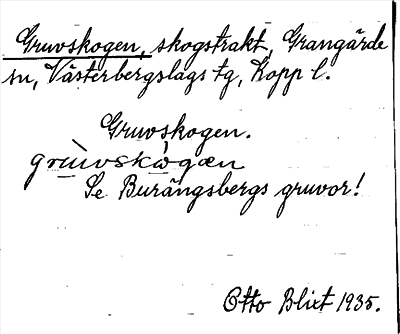 Gruvskogen, skogstrakt, Grangärde
sn, Västerbergslags tg, Kopp l.
Gruvskogen.
grùvskò̀gæn
Se Burängsbergs gruvor!
Otto Blixt 1935.